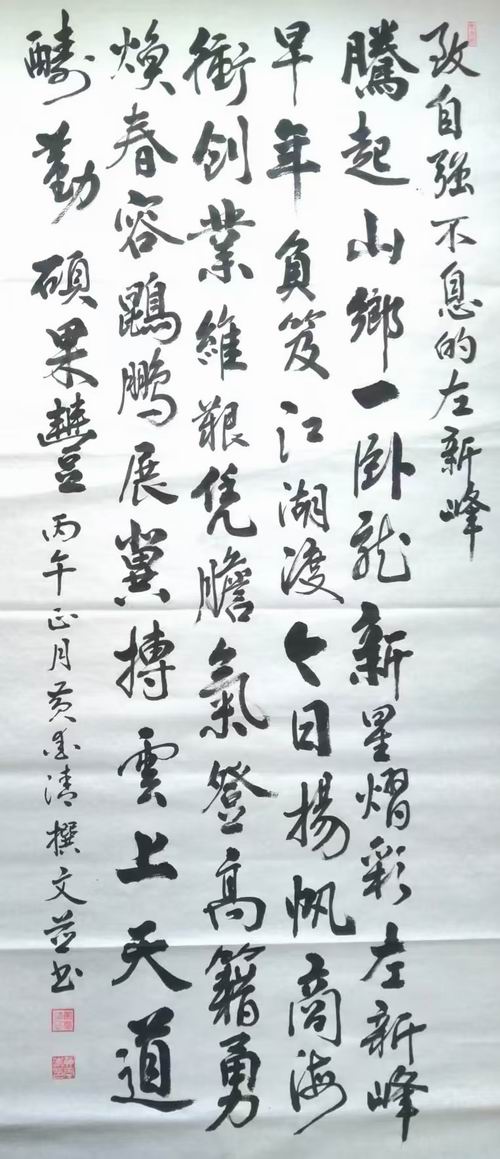 致自强不息的左新峰
騰起山鄉一卧龍新星熠彩左新峰
早年負笈江湖渡今日揚帆商海
衝創業維艱凭膽氣登高籍勇
焕春容鵾鹏展冀搏雲上天道
酬勤碩果豐丙午正月黄清撰文並书